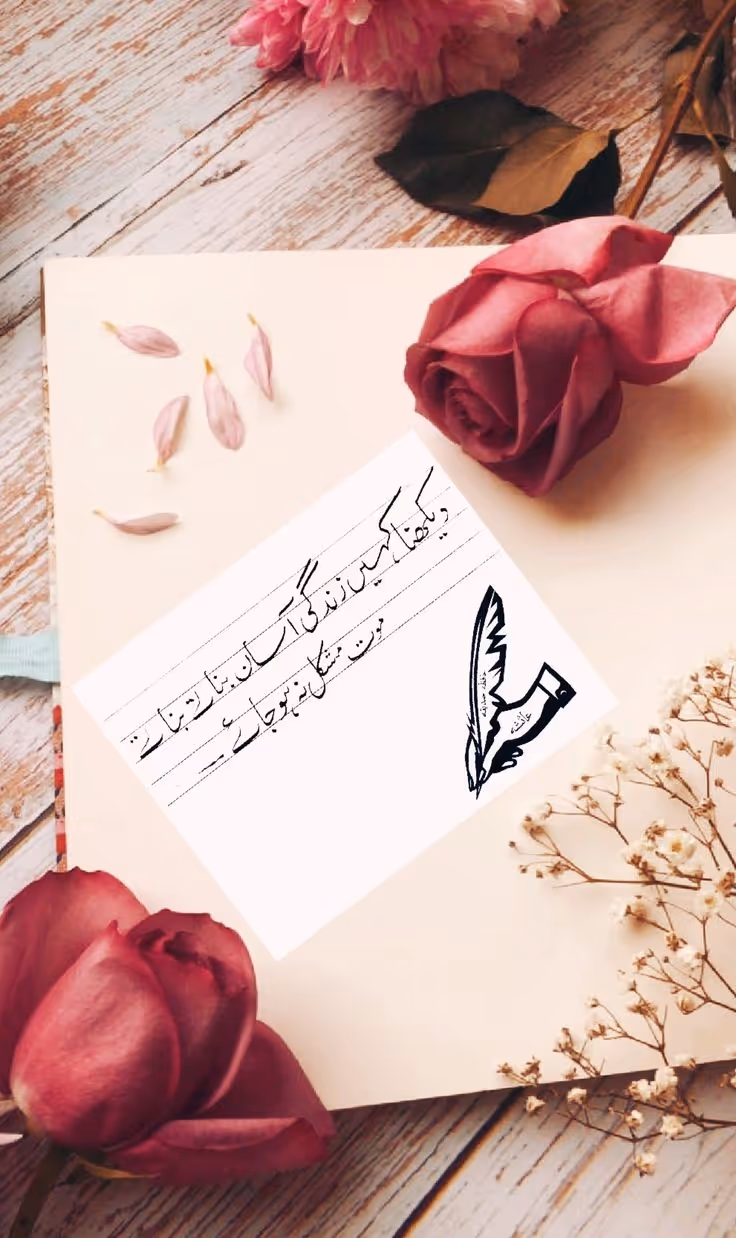 دیکھنا کہیں زندگی آسان بناتے بناتے
موت مشکل نہ ہو جائے ۔
عائشہ